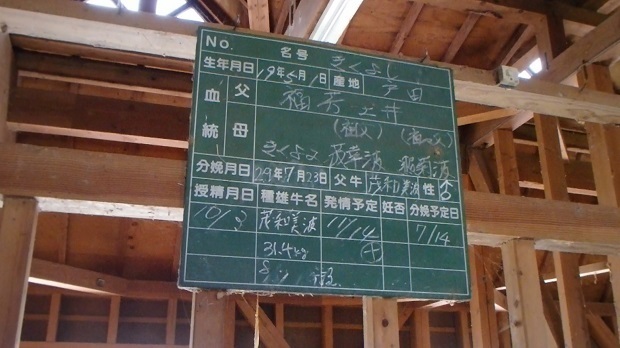 No. 名号 きくよし
生年月日 19年5月1日 産地 戸田
血統 父 福芳土井
(祖父)
母 きくよつ 茂華波
分娩月日 29年7月23日 父牛 茂和美波 性 ♂
授精月日 種雄牛名 発情予定 妊否 分娩予定日
10/3 茂和美波 11/14 7/14
31.4kg (+)